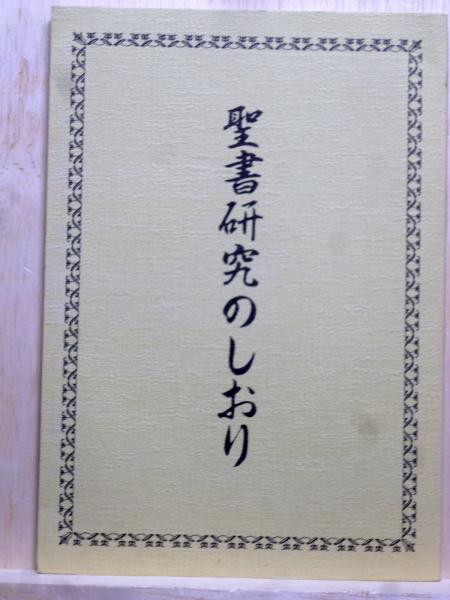 聖書研究のしおり